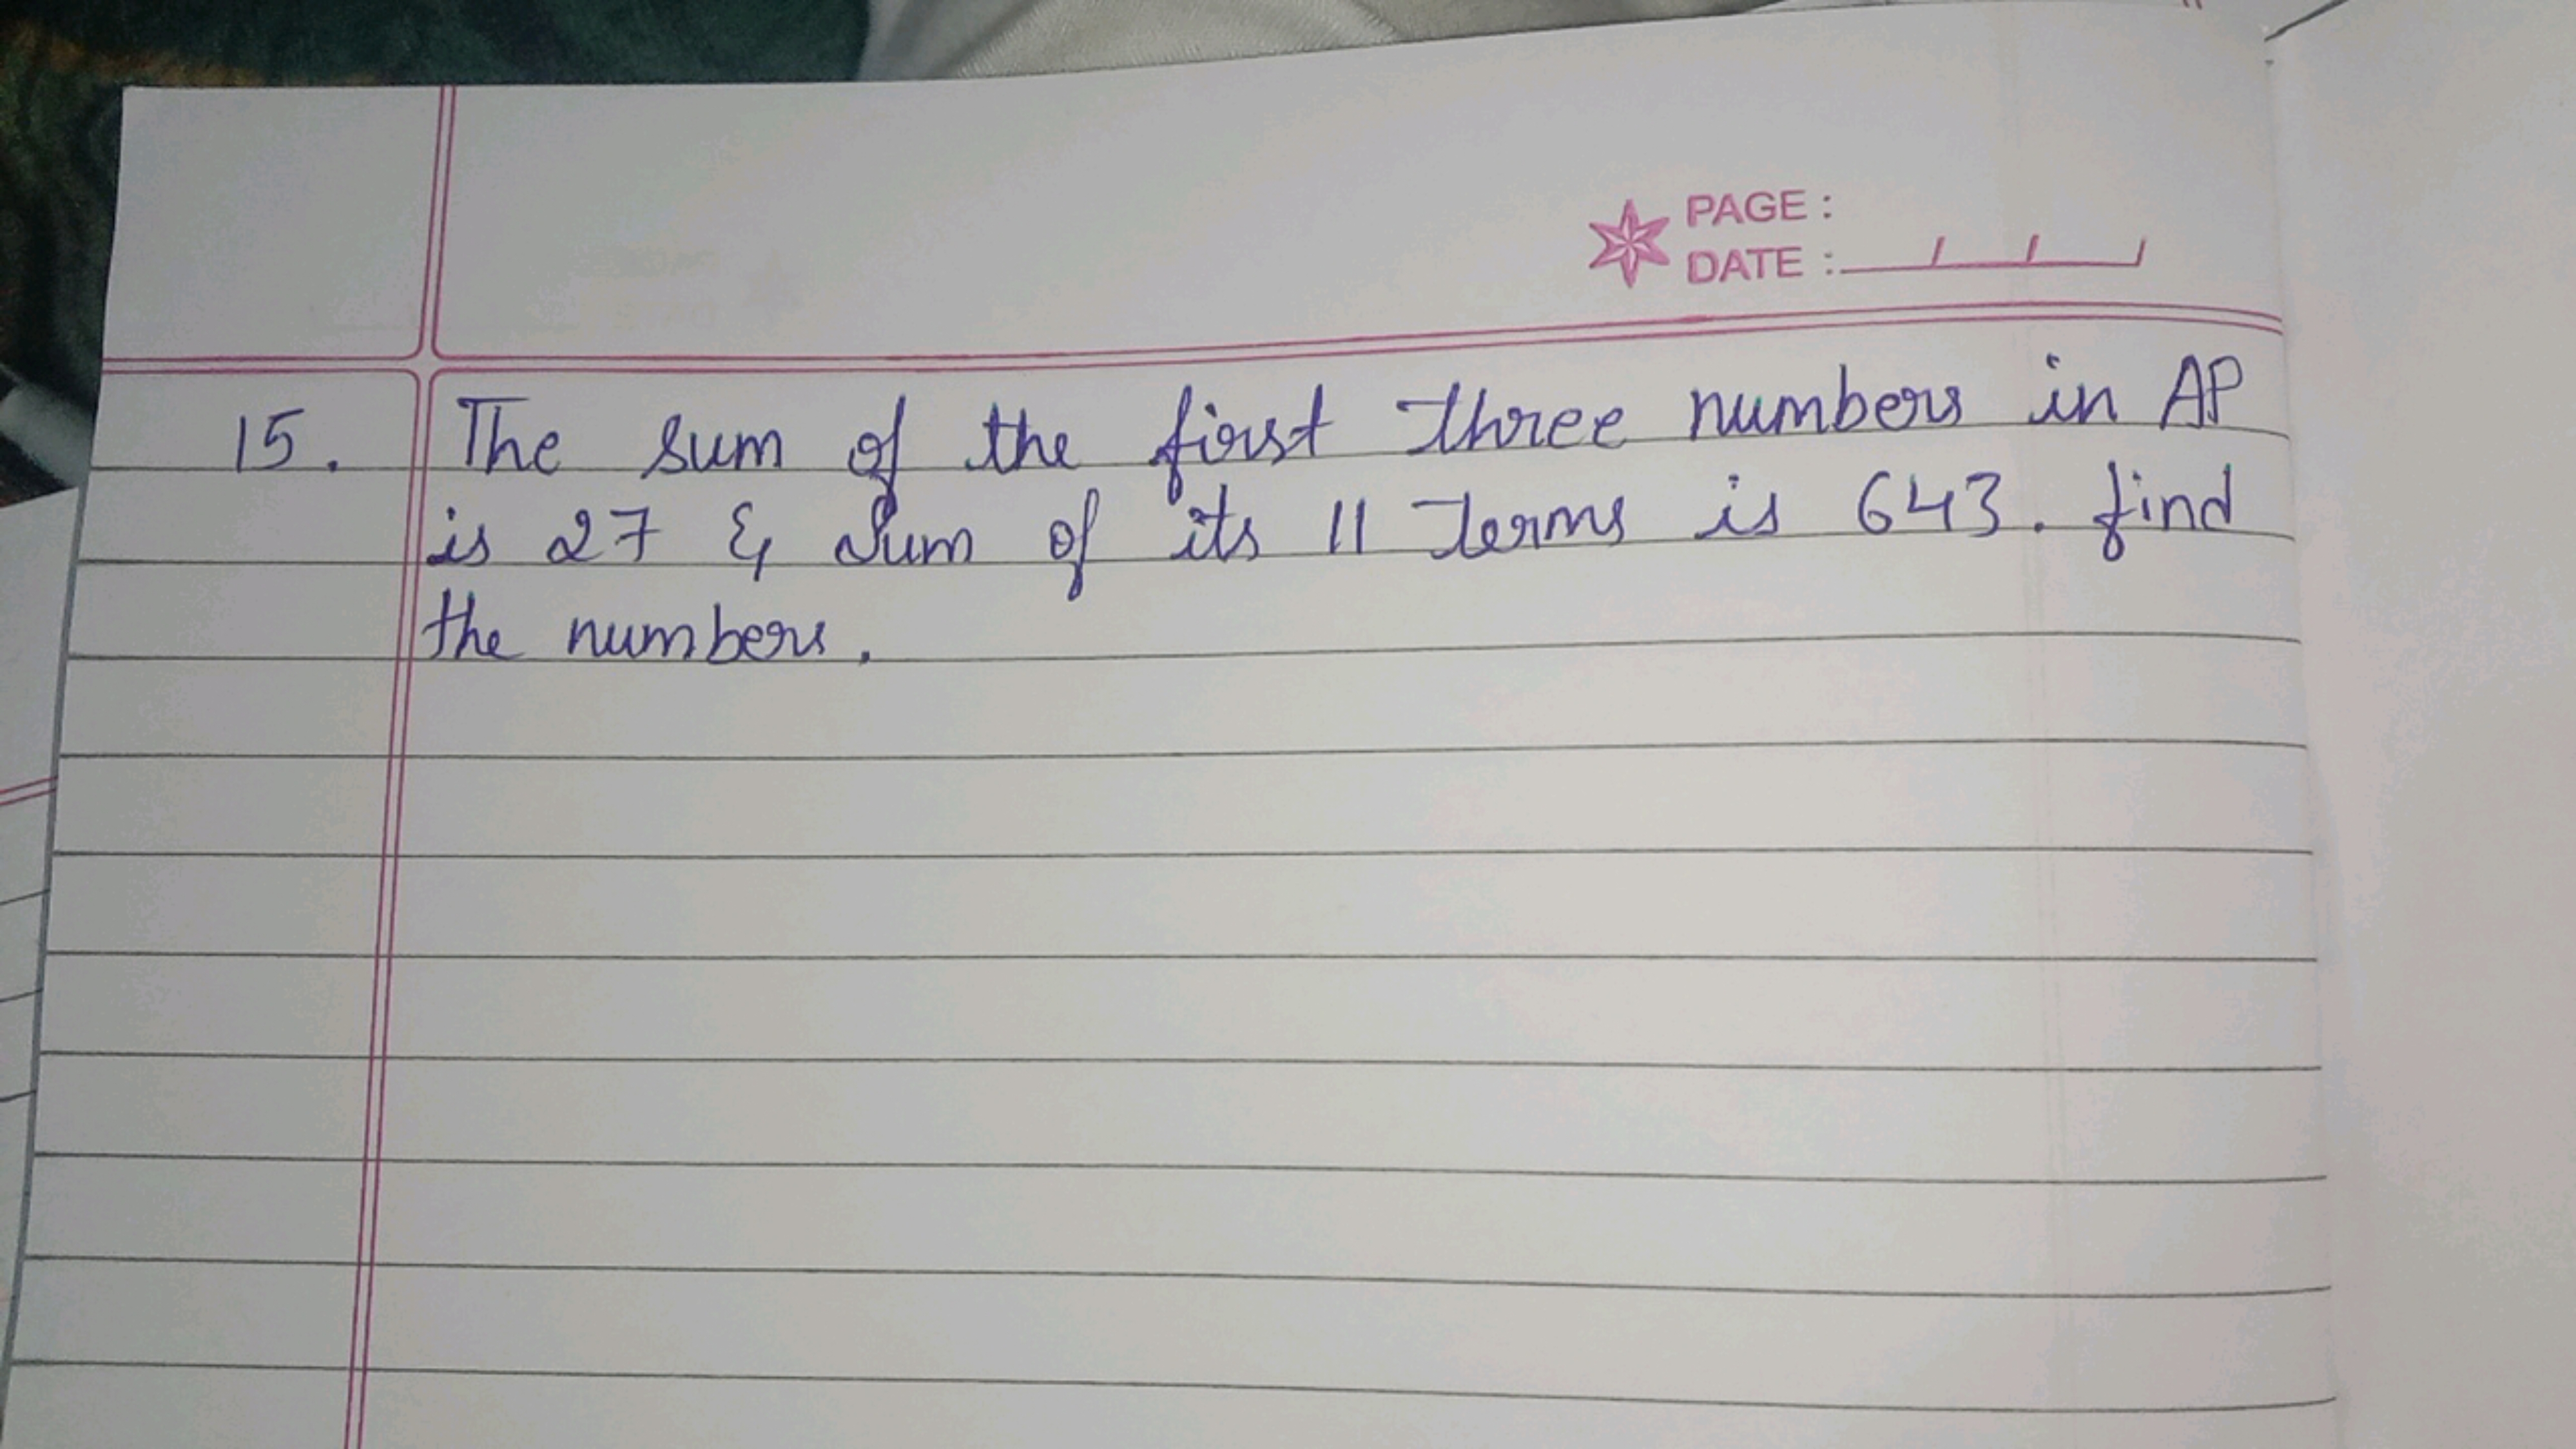 PAGE :
DATE : / / /
15. The sum of the first three numbers in AP
is 27 & Sum of its 11 terms is 643. find
the numbers.